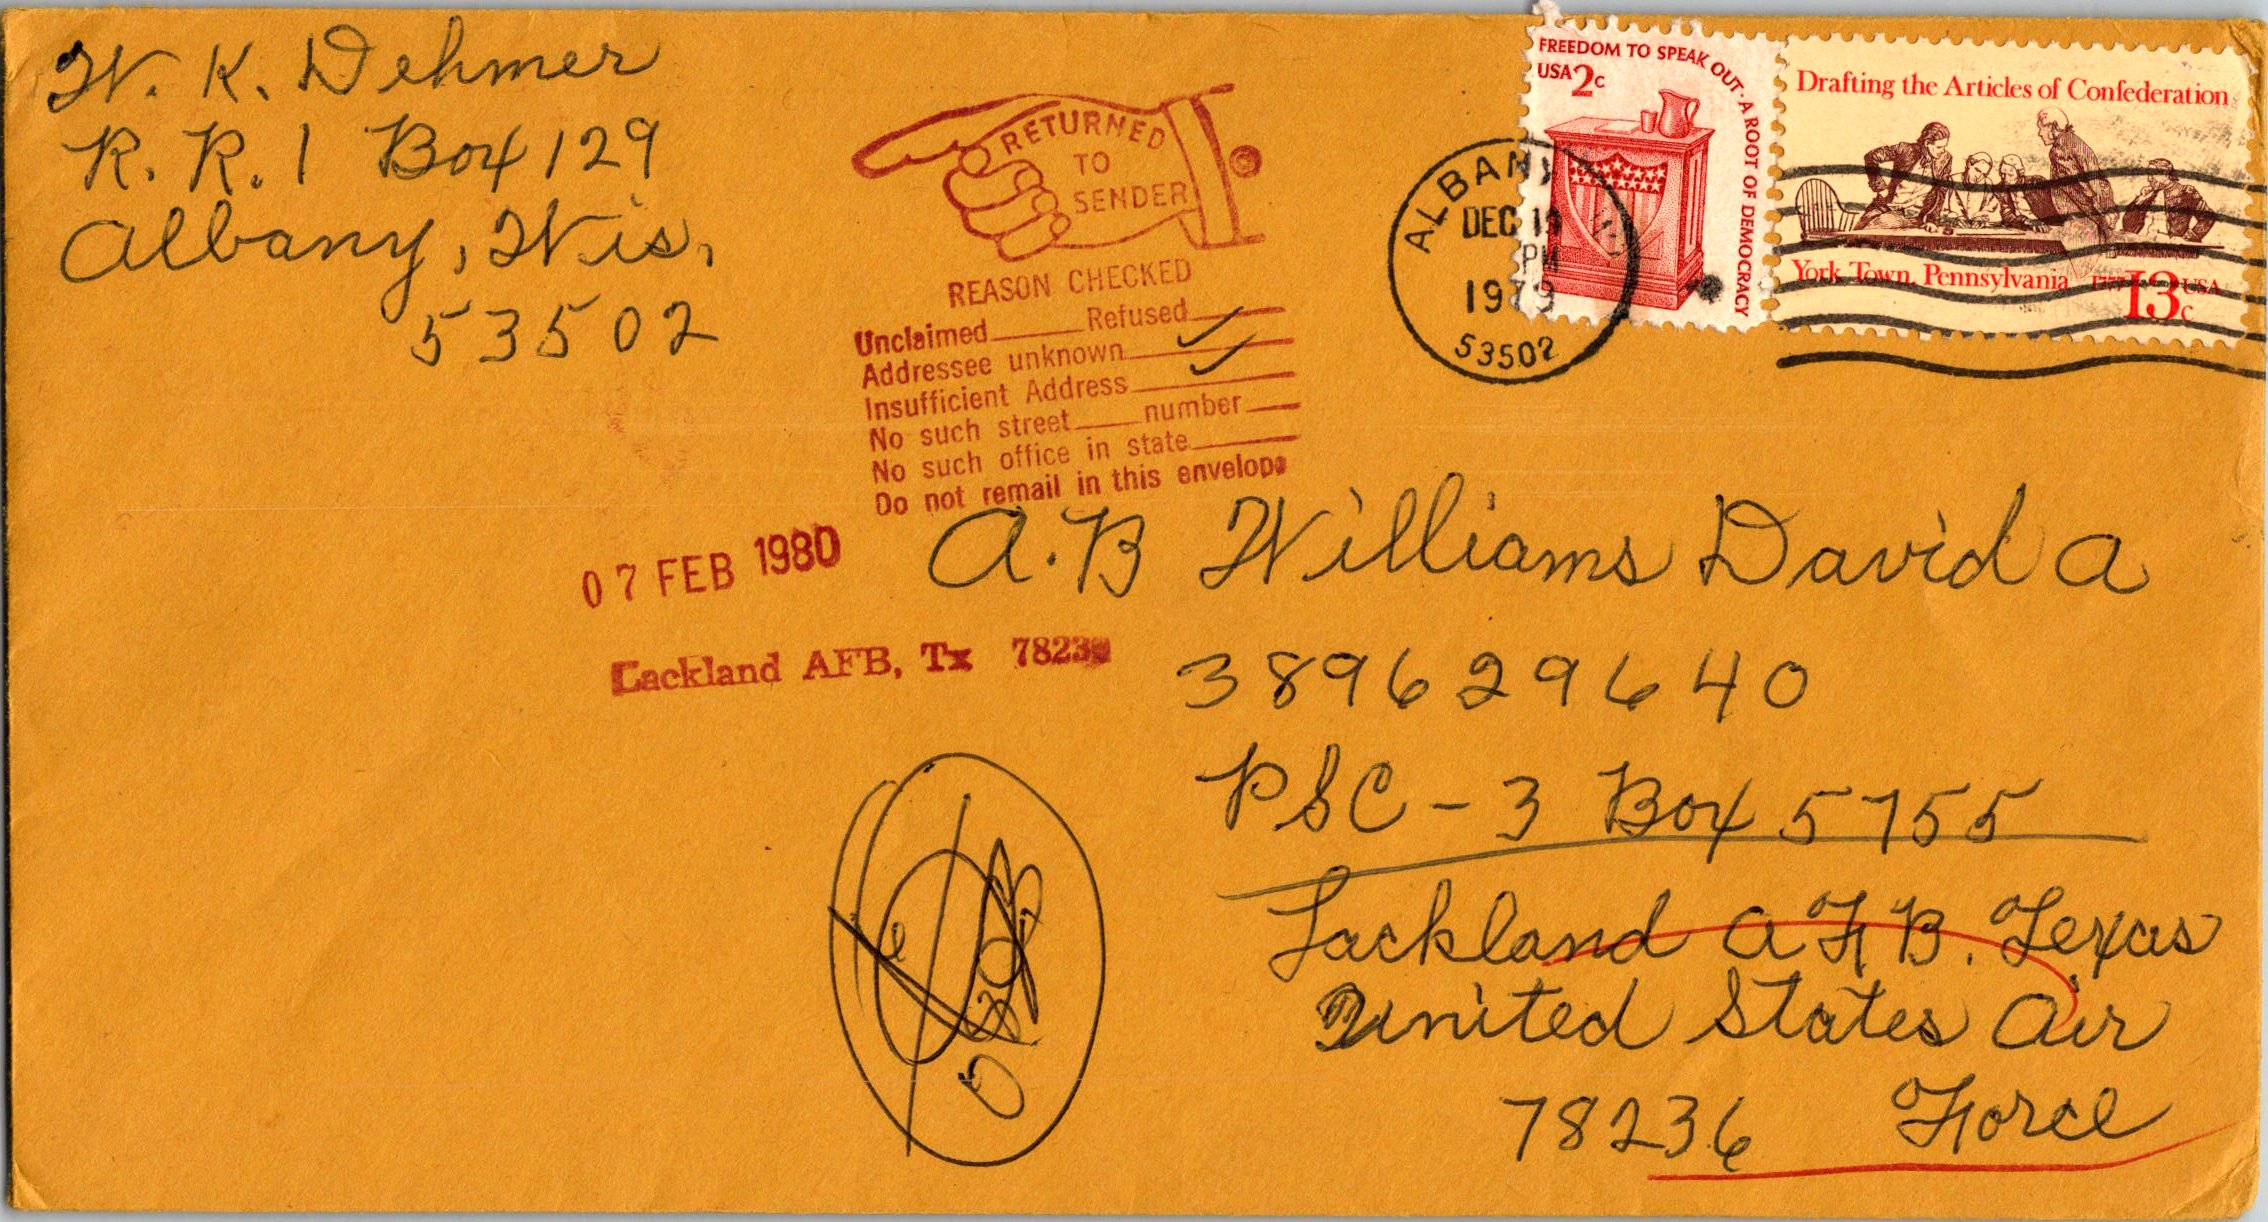 W. K. Dehmer
R. R. 1 Box 129
Albany, Wis.
53502
RETURNED
TO
SENDER
REASON CHECKED
Unclaimed Refused
Addressee unknown
Insufficient Address
No such street number
No such office in state
Do not remail in this envelope
ALBANY
DEC 19
PM
1979
53502
FREEDOM TO SPEAK OUT · A ROOT OF DEMOCRACY
USA 2c
Drafting the Articles of Confederation
York Town, Pennsylvania 1777 13c USA
07 FEB 1980
Lackland AFB, Tx
A.B Williams David A
389629640
PSC - 3 Box 5755
Lackland AFB. Texas
United States Air
78236 Force